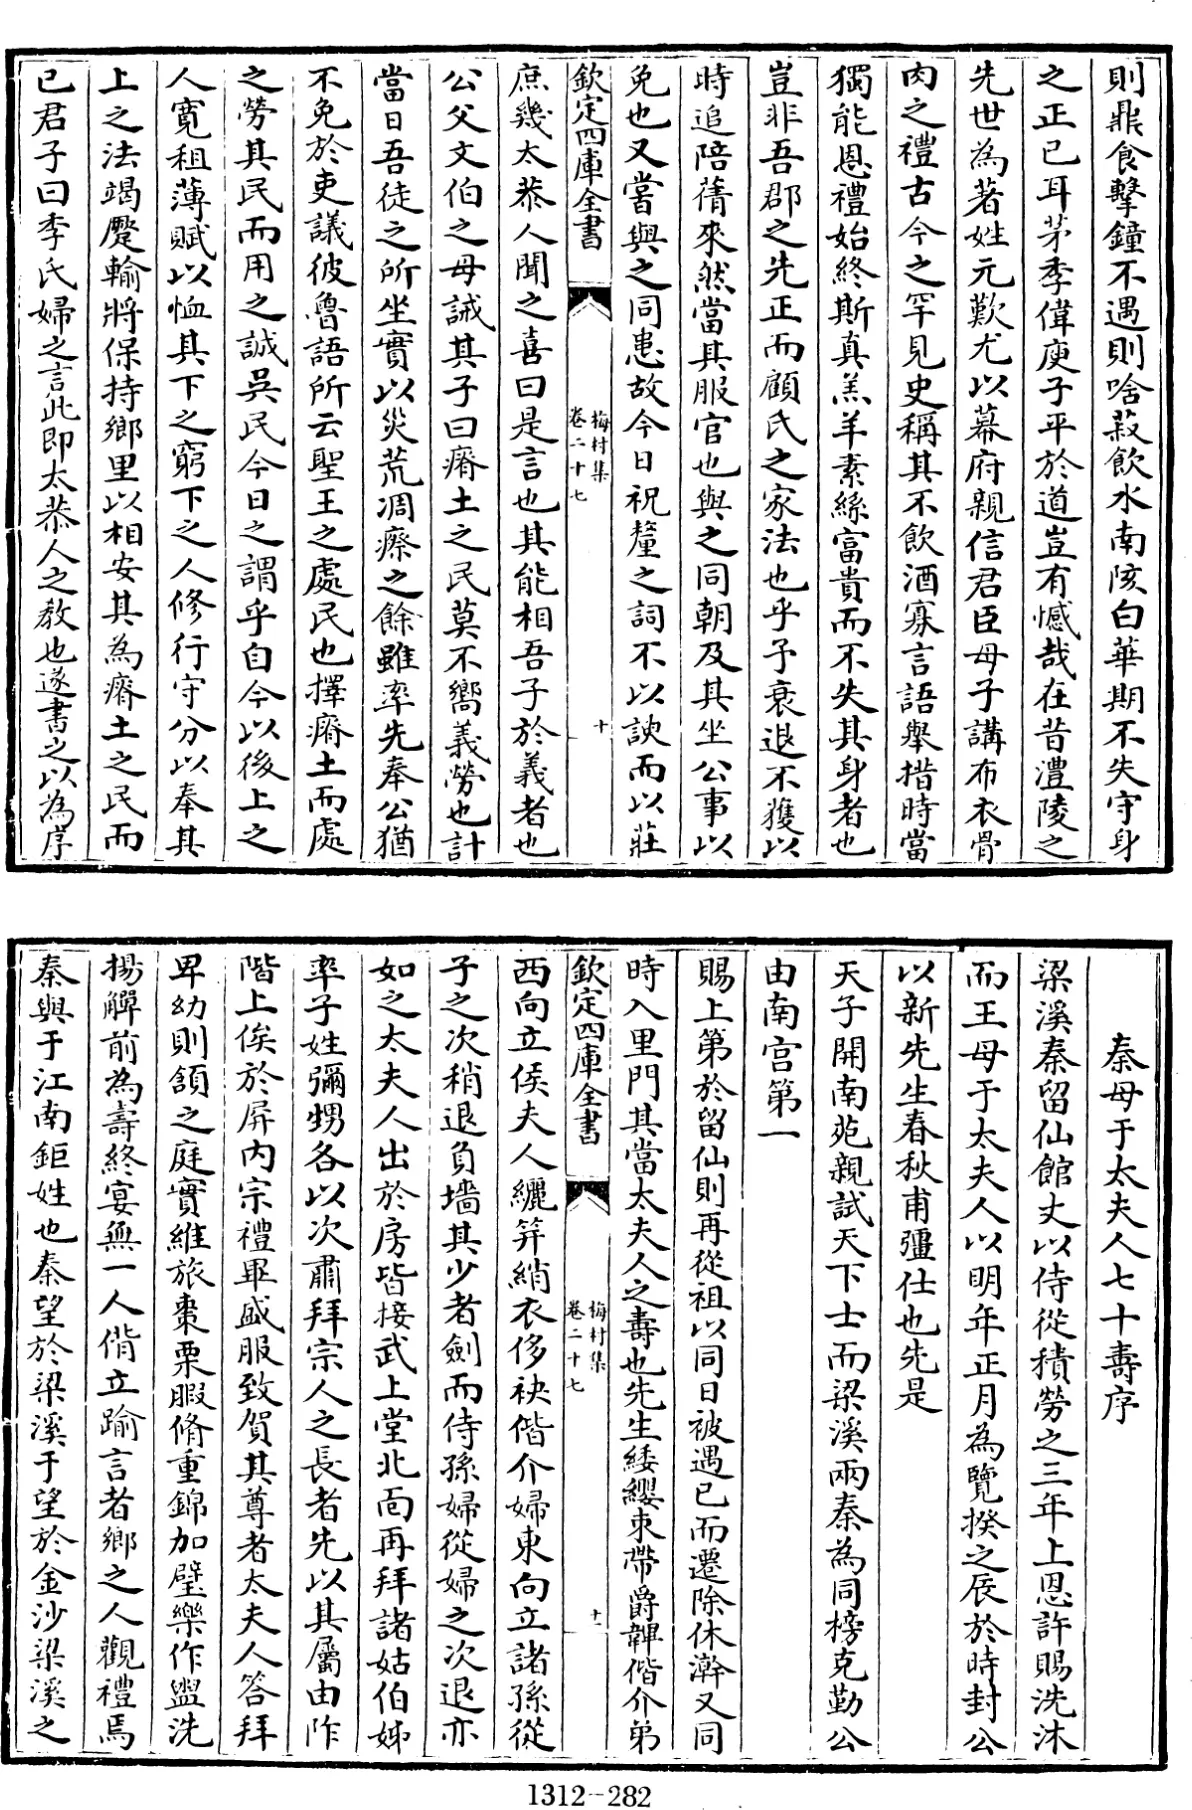 則鼎食擊鐘不遇則啥菽飲水南陔白華期不失守身
之正已耳茅季偉庾子平於道豈有憾哉在昔澧陵之
先世為著姓元歎尤以幕府親信君臣母子講布衣骨
肉之禮古今之罕見史稱其不飲酒寡言語舉措時當
獨能恩禮始終斯真羔羊素絲富貴而不失其身者也
豈非吾郡之先正而顧氏之家法也乎予衰退不獲以
時追陪蒨來然當其服官也與之同朝及其坐公事以
免也又嘗與之同患故今日祝釐之詞不以諛而以莊
欽定四庫全書
梅村集
卷二十七
十
庶幾太恭人聞之喜曰是言也其能相吾子於義者也
公父文伯之母誡其子曰瘠土之民莫不嚮義勞也計
當日吾徒之所坐實以災荒凋瘵之餘雖率先奉公猶
不免於吏議彼魯語所云聖王之處民也擇瘠土而處
之勞其民而用之誠吳民今日之謂乎自今以後上之
人寛租薄賦以恤其下之窮下之人修行守分以奉其
上之法竭蹷輸將保持鄉里以相安其為瘠土之民而
已君子曰季氏婦之言此即太恭人之教也遂書之以為序
秦母于太夫人七十壽序
梁溪秦留仙館丈以侍從積勞之三年上恩許賜洗沐
而王母于太夫人以明年正月為覽揆之辰於時封公
以新先生春秋甫彊仕也先是
天子開南苑親試天下士而梁溪兩秦為同榜克勤公
由南宫第一
賜上第於留仙則再從祖以同日被遇已而遷除休澣又同
時入里門其當太夫人之壽也先生緌纓束帶爵韠偕介弟
欽定四庫全書
梅村集
卷二十七
十一
西向立侯夫人纚笄綃衣侈袂偕介婦東向立諸孫從
子之次稍退負墻其少者劍而侍孫婦從婦之次退亦
如之太夫人出於房皆接武上堂北面再拜諸姑伯姊
率子姓彌甥各以次肅拜宗人之長者先以其屬由阼
階上俟於屏内宗禮畢盛服致賀其尊者太夫人答拜
卑幼則頷之庭實維旅棗栗腶脩重錦加璧樂作盥洗
揚觶前為壽終宴無一人偝立踰言者鄉之人觀禮焉
秦與于江南鉅姓也秦望於梁溪于望於金沙梁溪之
1312-282